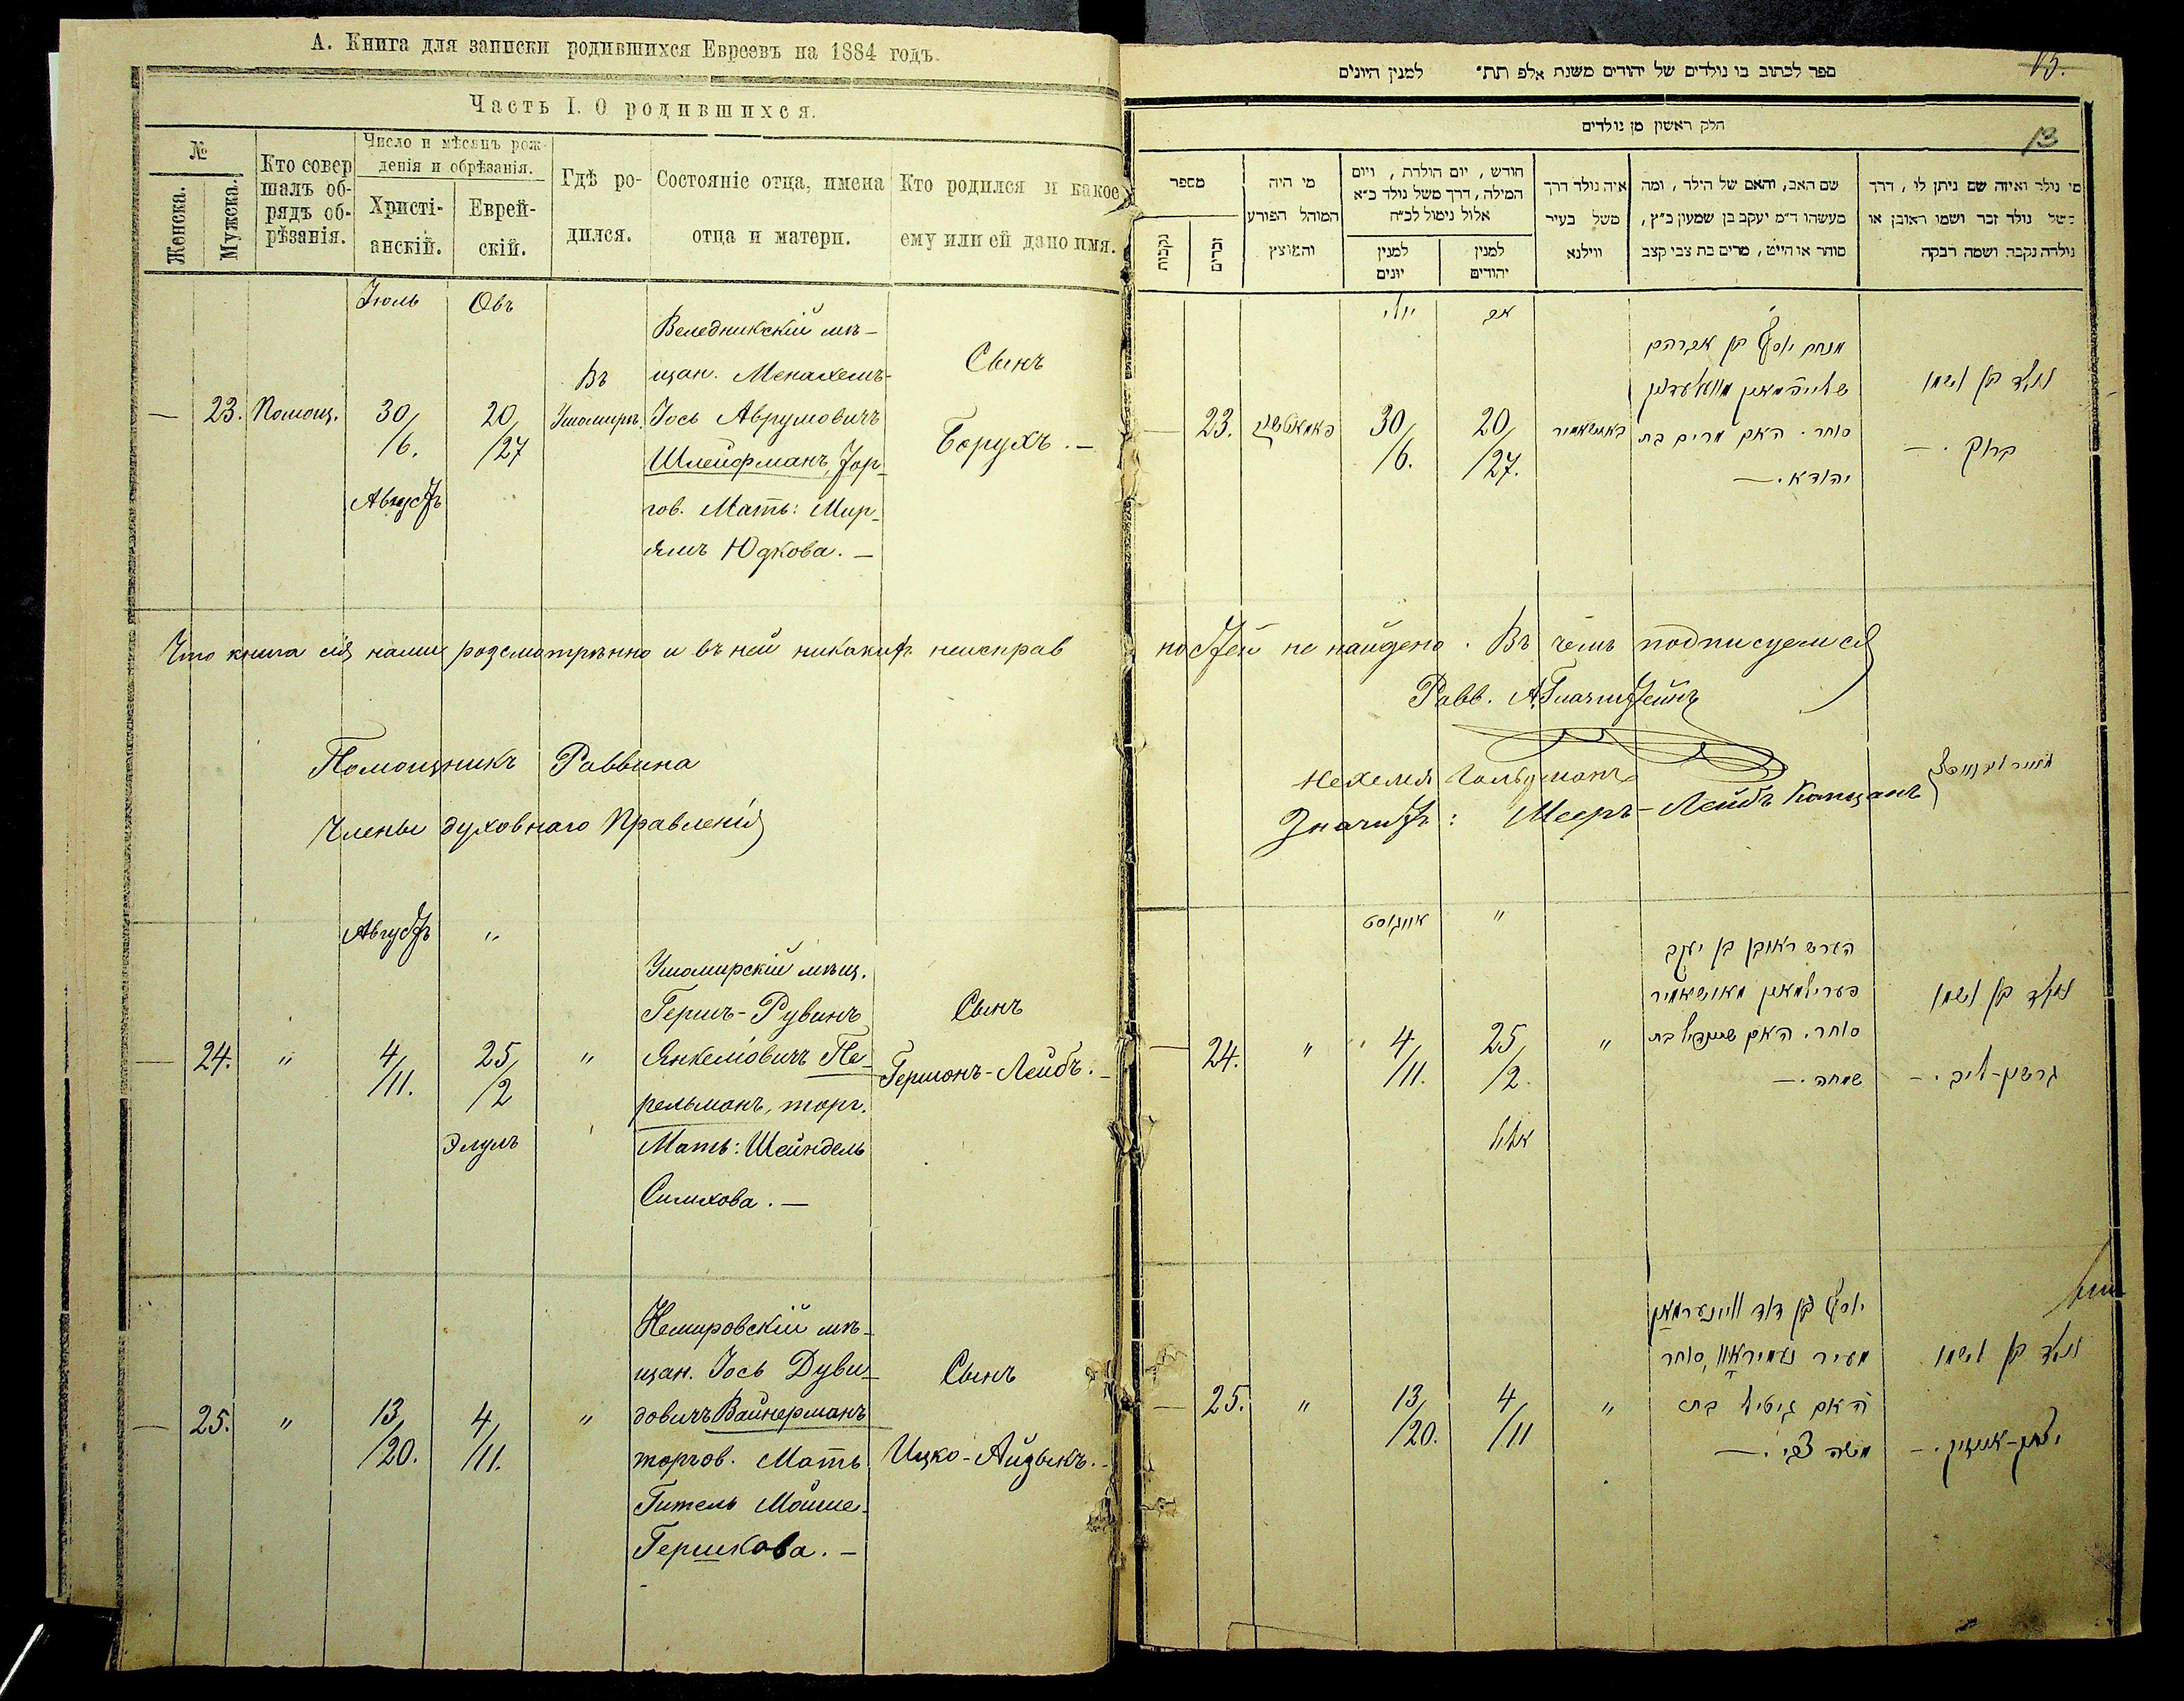 А. Книга для записки родившихся Евреевъ на 1884 годъ.
Часть I. О родившихся.
№
Женска.
Мужска.
Кто совер
шалъ об-
рядъ об-
рѣзанія.
Число и мѣсяцъ рож-
денія и обрѣзанія.
Христі-
анскій.
Еврей-
скій.
Гдѣ ро-
дился.
Состояніе отца, имена
отца и матери.
Кто родился и какое
ему или ей дано имя.
Іюль
Овъ
— 23. Помощ. 30/6. 20/27
Августъ
Въ
Ушомирѣ.
Веледникскій мѣ-
щан. Менахемъ-
Іось Аврумовичъ
Шлейфманъ, Тор-
гов. Мать: Мир-
ямъ Юдкова. —
Сынъ
Борухъ. —
Что книга сія нами разсмотрѣнно и въ ней никакихъ несправ
Помощникъ Раввина
Члены духовнаго Правленія
Августъ "
— 24. " 4/11. 25/2 "
Элулъ
Ушомирскій мѣщ.
Гершъ-Рувинъ
Янкеліовичъ Пе-
рельманъ, торг.
Мать: Шейндель
Симхова. —
Сынъ
Гершонъ-Лейбъ. —
— 25. " 13/20. 4/11. "
Немировскій мѣ-
щан. Іось Дуви-
довичъ Вайнерманъ
торгов. Мать
Гитель Мойше-
Гершкова. —
Сынъ
Ицко-Айзыкъ. -
13
ספר לכתוב בו נולדים של יהודים משנת אלפ תת״ למנין היונים
חלק ראשון מן נולדים
מספר
נקבות
זכרים
מי היה
המוהל הפורע
והמוצץ
חודש, יום הולדת, ויום
המילה, דרך משל נולד כ״א
אלול נימול לכ״ח
למנין
יונים
למנין
יהודים
איה נולד דרך
משל בעיר
ווילנא
שם האב, והאם של הילד, ומה
מעשהו ד״מ יעקב בן שמעון כ״ץ,
סוחר או חייט, מרים בת צבי קצב
מי נולד ואיזה שם ניתן לו, דרך
משל נולד זכר ושמו ראובן או
נולדה נקבה ושמה רבקה
יולי
אב
— 23. 30/6. 20/27.
מנחם יוסף בן אברהם
סוחר. האם מרים בת
יהודא. —
נולד בן ושמו
ברוך. —
ностей не найдено. Въ чемъ подписуемся
Равв.
Нехемія Гольдманъ
Значитъ: Мееръ-Лейбъ Капцанъ
אויגוסט "
— 24. " 4/11. 25/2. "
אלול
הערש ראובן בן יעקב
פערילמאן מאושאמיר
סוחר. האם שיינדיל בת
שמחה. —
נולד בן ושמו
גרשון-ליב. —
— 25. " 13/20. 4/11 "
יוסף בן דוד וויינערמאן
מעיר נעמיראוו, סוחר
האם גיטיל בת
משה צבי. —
נולד בן ושמו
יצחק-אייזיק. —